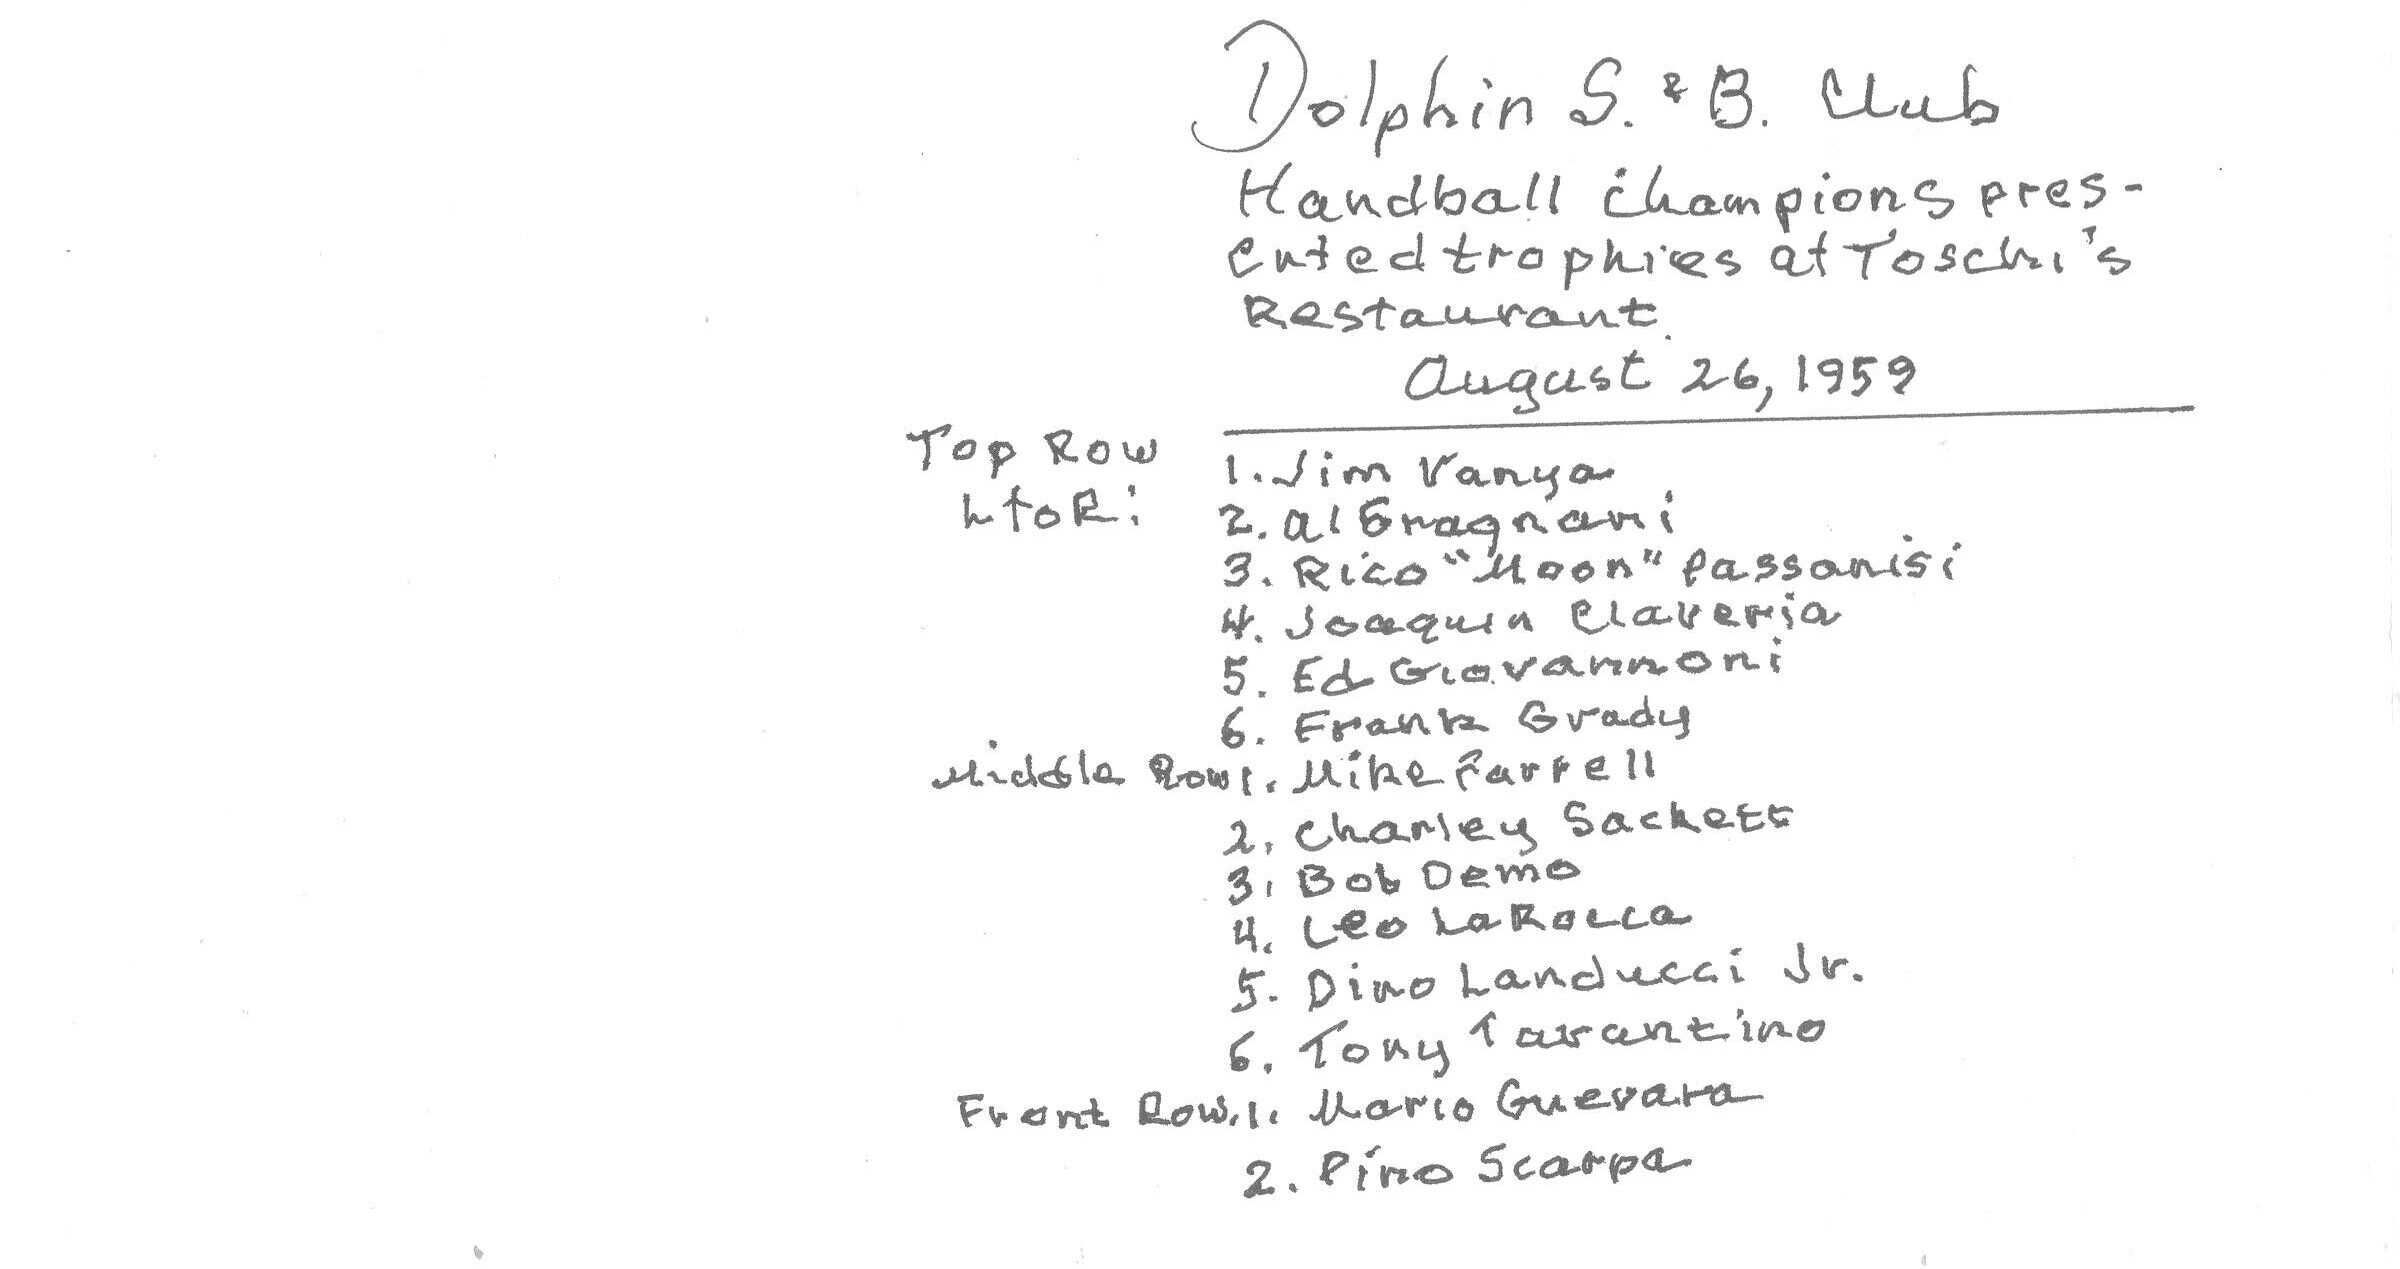 Dolphin S. & B. Club
Handball Champions pres-
ented trophies at Toschi's
Restaurant.
August 26, 1959
Top Row
L to R:
1. Jim Vanya
2. Al Gragnani
3. Rico "Moon" Passanisi
4. Joaquin Claveria
5. Ed Giovannoni
6. Frank Grady
Middle Row 1. Mike Farrell
2. Charley Sackett
3. Bob Demo
4. Leo LaRocca
5. Dino Landucci Jr.
6. Tony Tarantino
Front Row. 1. Mario Guevara
2. Pino Scarpa